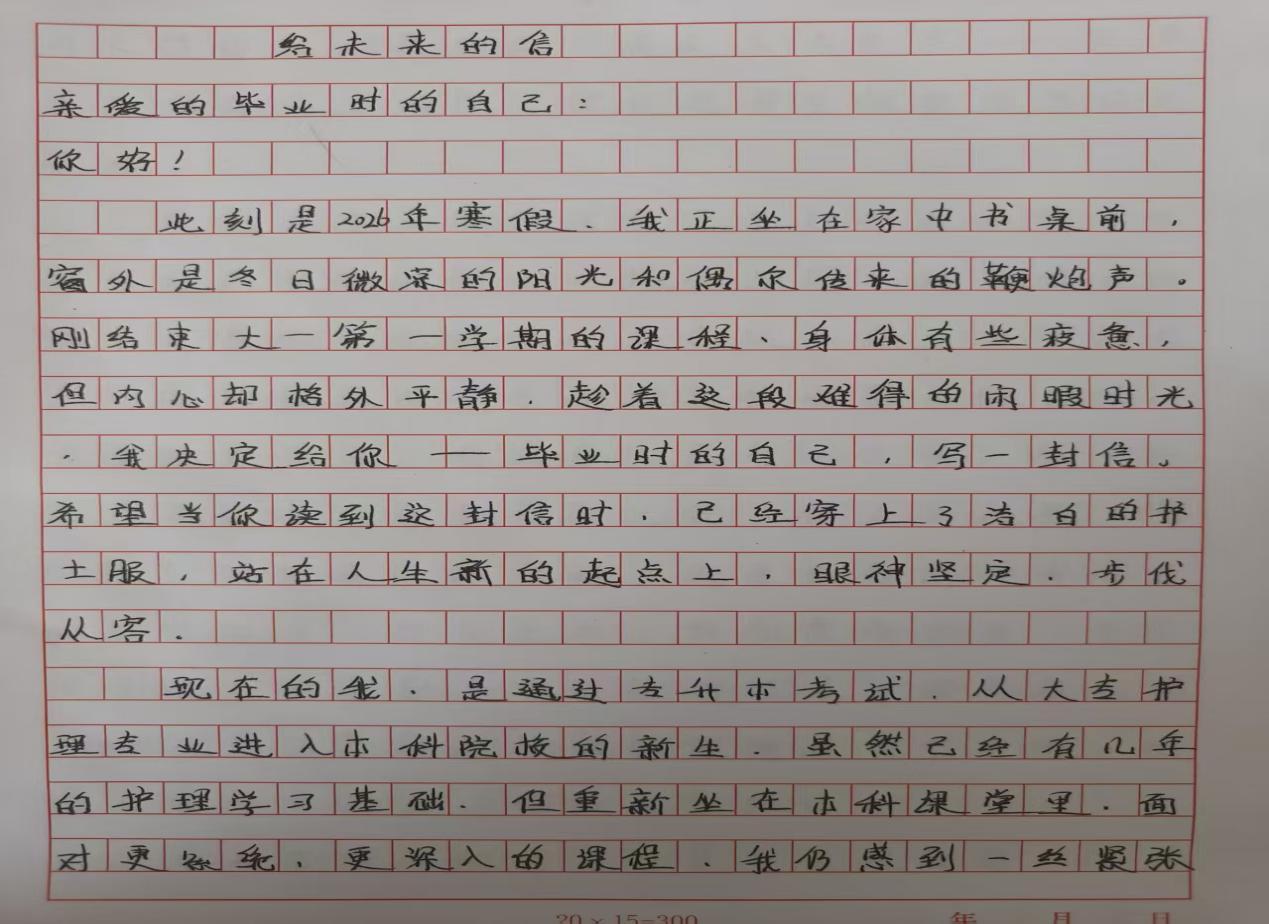 给未来的信
亲爱的毕业时的自己：
你好！
此刻是2026年寒假．我正坐在家中书桌前，
窗外是冬日微深的阳光和偶尔传来的鞭炮声。
刚结束大一第一学期的课程、身体有些疲惫，
但内心却格外平静．趁着这段难得的闲暇时光
．我决定给你——毕业时的自己，写一封信。
希望当你读到这封信时．已经穿上了洁白的护
士服，站在人生新的起点上．眼神坚定．步伐
从容．
现在的我．是通过专升本考试．从大专护
理专业进入本科院校的新生．虽然已经有几年
的护理学习基础．但重新坐在本科课堂里．面
对更系统、更深入的课程、我仍感到一丝紧张
20×15=300 年 月 日